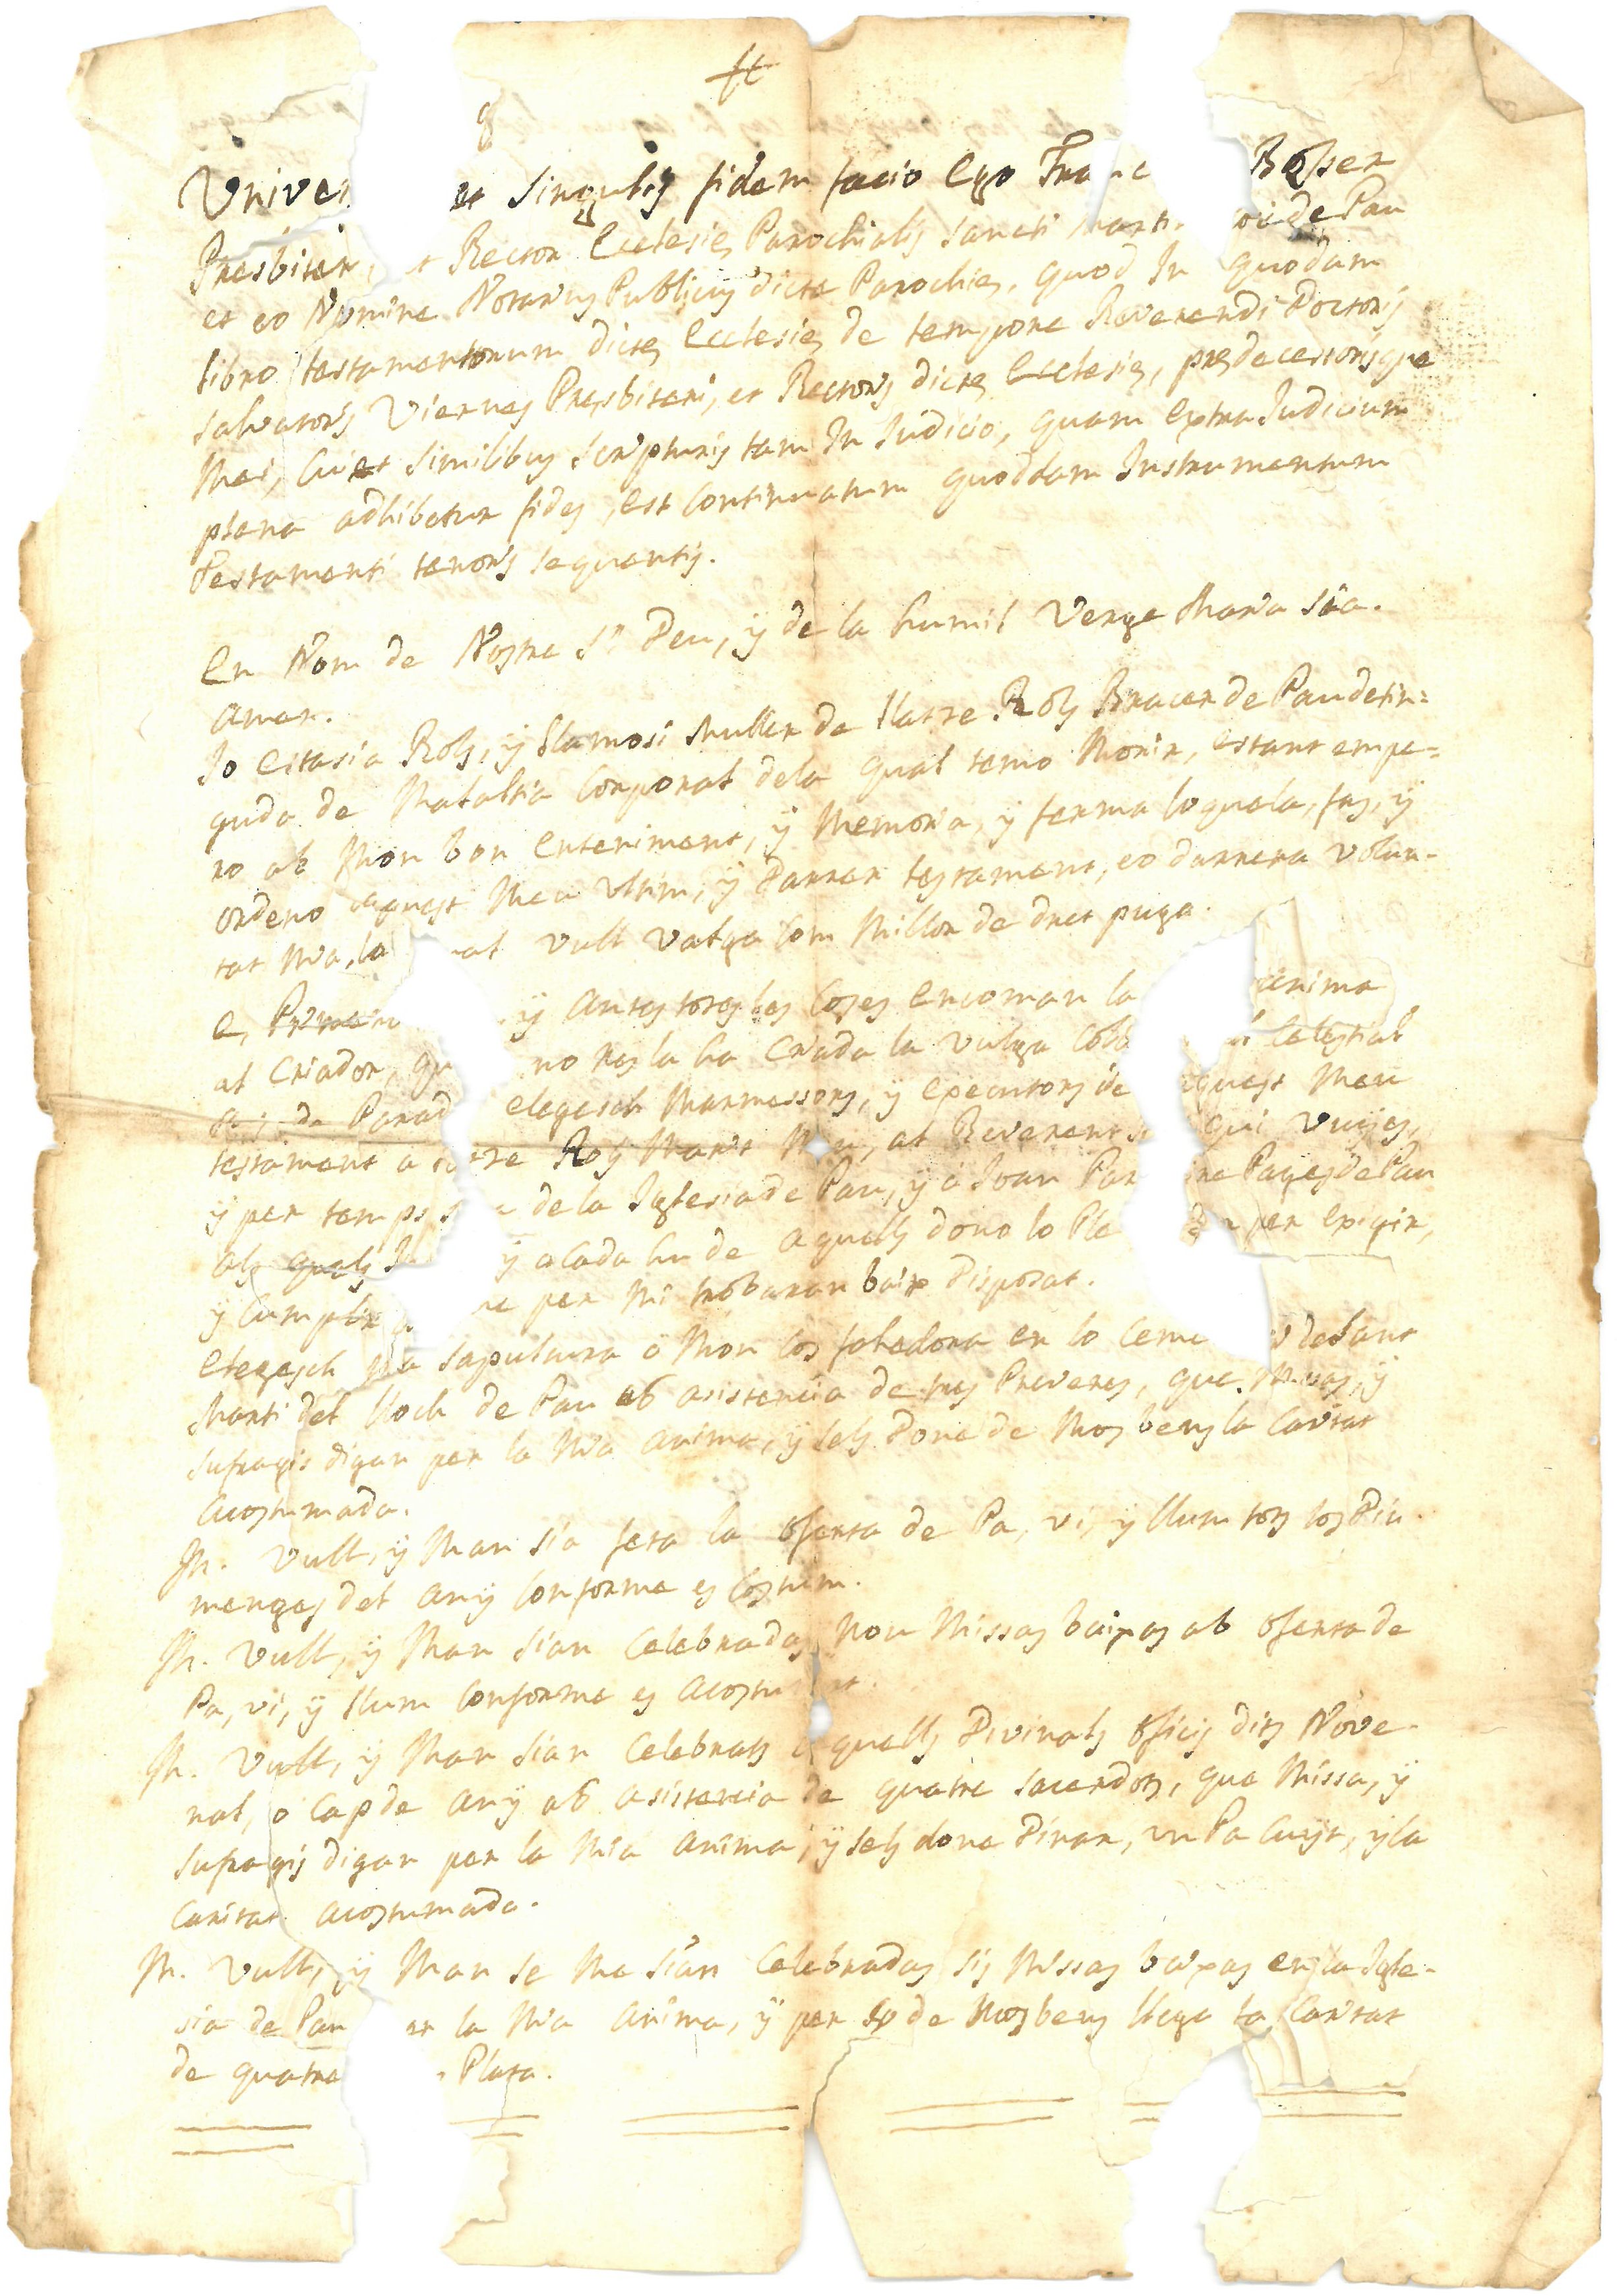 Univer et Singulis fidem facio Ego Fran Bosser
Presbiter et Rector Ecclesiæ Parochialis Sancti Marti de Pau
et eo Nomine Notarius Publicus dictæ Parochiæ, quod In quodam
libro testamentorum dictæ Ecclesiæ de tempore Reverendi Doctoris
Salvatoris Viernes Presbiteri, et Rectoris dictæ Ecclesiæ, prædecessorisque
Mei, Cui et Similibus Scripturis tam In Judicio, quam Extra Judicium
plena adhibetur fides, est Continuatum quoddam Instrumentum
Testamenti tenoris sequentis.
En Nom de Nostre Sr. Deu, ÿ de la humil Verge Maria Sta.
Amen.
Jo Eitasia Rols, ÿ Llamosi Muller de Llatze Rols Bracer de Pau detin=
guda de Malaltia Corporal dela qual temo Morir, estant empe=
ro ab Mon bon Enteniment, ÿ Memoria, ÿ ferma loquela, fas, ÿ
Ordeno aquest Meu Ultim, ÿ Darrer testament, eo darrera volun-
tat Mia, la al Vull Valga Com Millor de dret puga.
E, Primera ÿ Antes totes les Coses Encoman la anima
al Criador, qu no res la ha Criada la Vulga Col Celestial
de Parad elegesch Marmessors, ÿ Executors de aquest Meu
testament a Llatze Rols Marit Meu, al Reverent qui Vuÿ es,
ÿ per temps de la Iglesia de Pau, ÿ á Joan Par Pagés de Pau
als quals ÿ a Cada hu de aquells dono lo Ple per exigir,
ÿ Cumplir per Mi trobaran baix disposat.
Elegesch la Sepultura á Mon Cos fahedora en lo Ceme de Sant
Marti del Lloch de Pau ab asistencia de tres Preveres, que Missas, ÿ
Sufragis digan per la Mia Anima, ÿ sels Done de Mos bens la Caritat
Acostumada.
Itt. Vull, ÿ Man sia feta la oferta de Pa, vi, ÿ llum tots los Diu-
menges del Anÿ Conforme es Costum.
Itt. Vull, ÿ Man sian Celebradas Nou Missas baixas ab oferta de
Pa, vi, ÿ llum Conforme es Acostu at.
Itt. Vull, ÿ Man sian Celebrats aquells Divinals oficis dits Nove-
nal, o Cap de Anÿ ab asistencia de quatre Sacerdots, que Missa, ÿ
Sufragis digan per la Mia Anima, ÿ sels done Dinar, un Pa Cuÿt, ÿ la
Caritat Acostumada.
Itt. Vull, ÿ Man se Me sian Celebradas sis Missas baixas en la Igle-
sia de Pau er la Mia Anima, ÿ per so de Mos bens llega la Caritat
de quatre Plata.